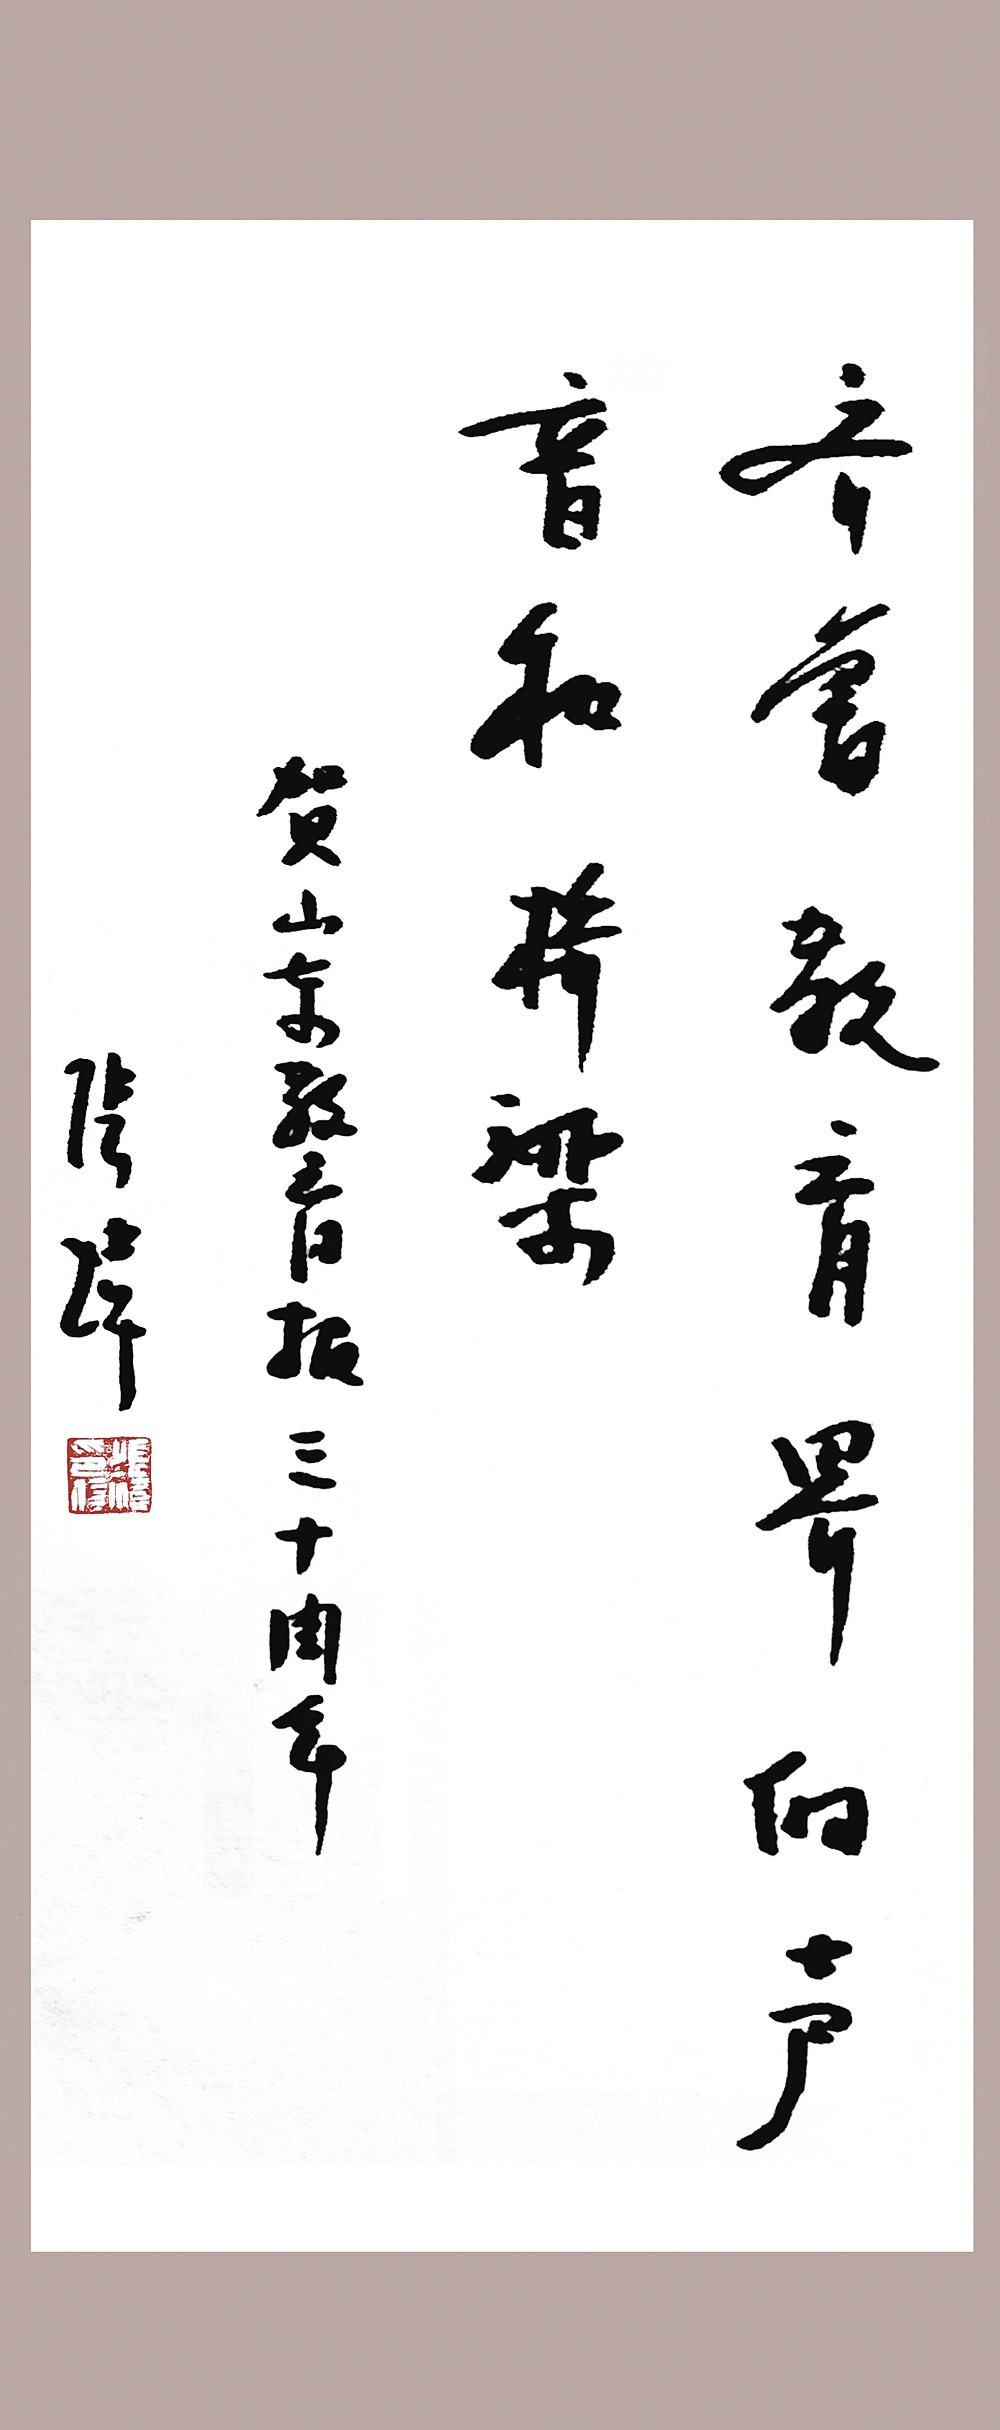 齐鲁教育界的声
音和桥梁
贺山东教育报三十周年